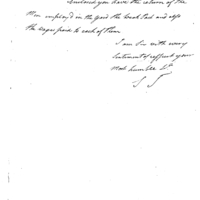 Inclosed you have the return of the
Men employ'd in the Yard the Week Past and also
the wages paid to each of them
I am Sir with every
Sentiment of respect your
most humble St